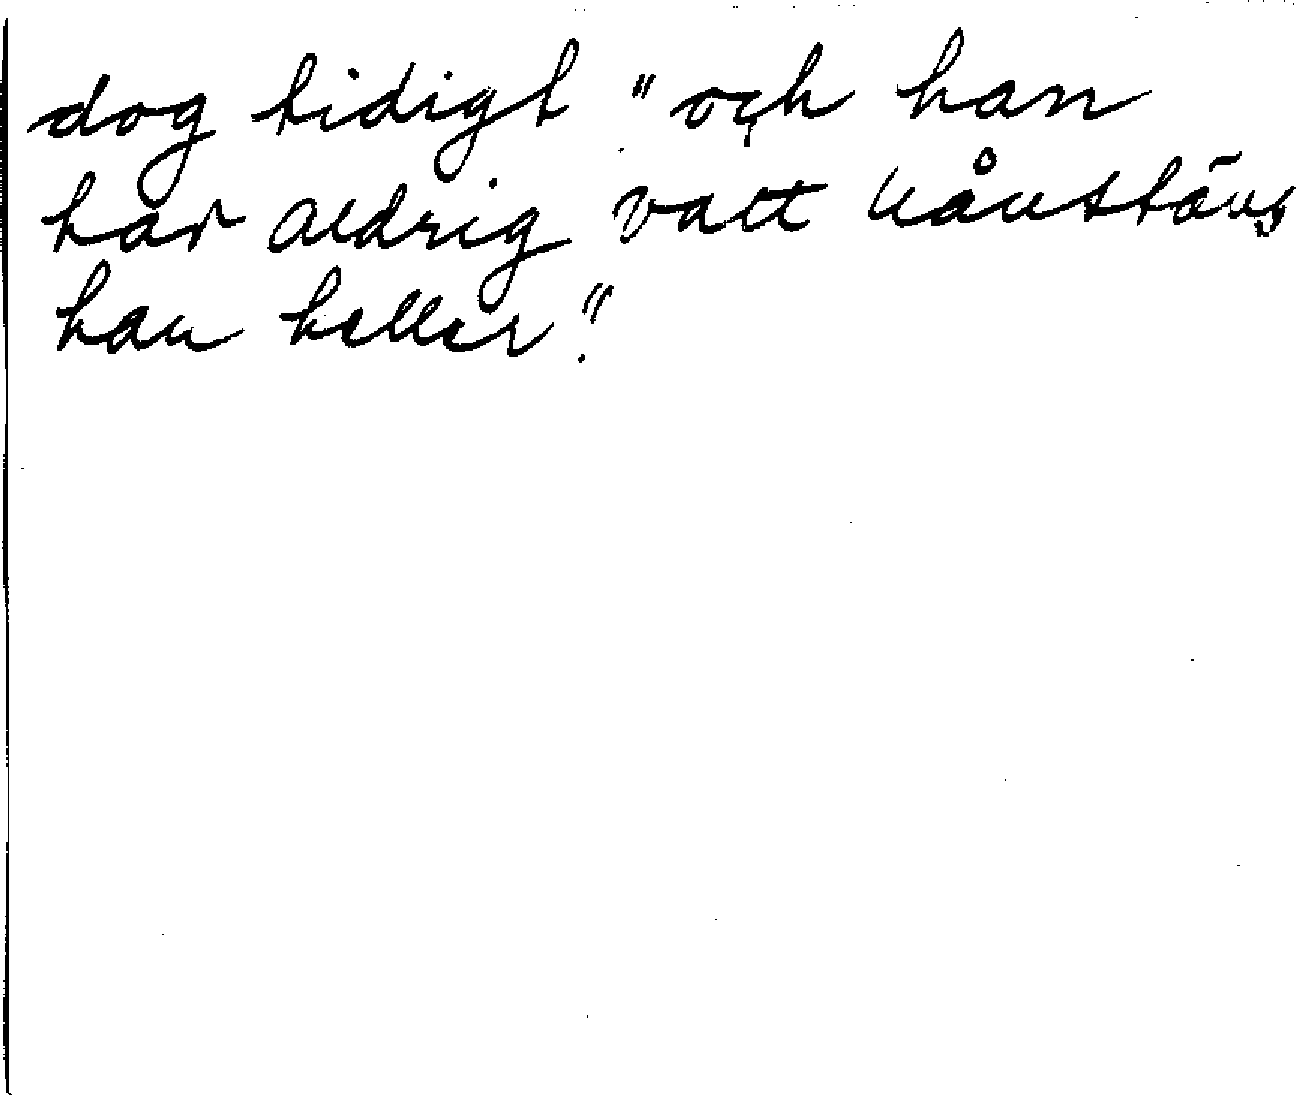 dog tidigt "och han
har aldrig vatt nånstäns
han heller."